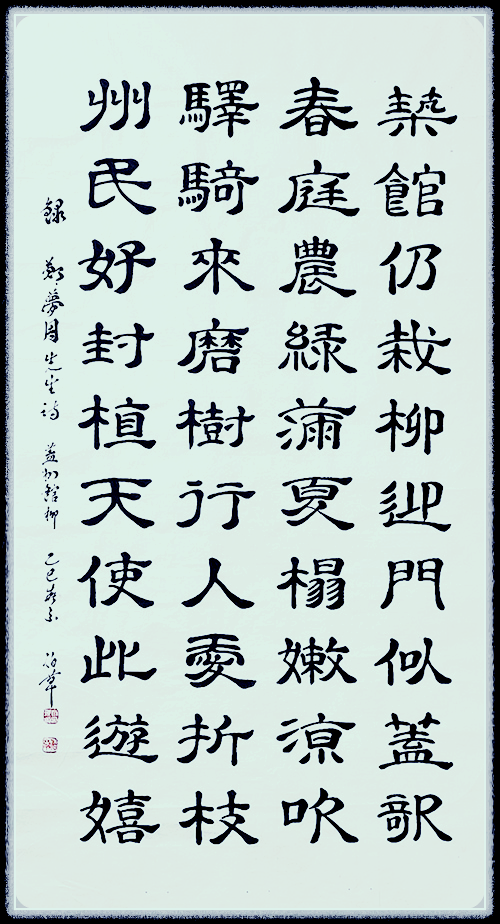 築館仍栽柳迎門似蓋欹
春庭農綠滿夏榻嫩凉吹
驛騎來磨樹行人愛折枝
州民好封植天使此遊嬉
錄 鄭夢周先生詩 蓋州館柳 乙巳